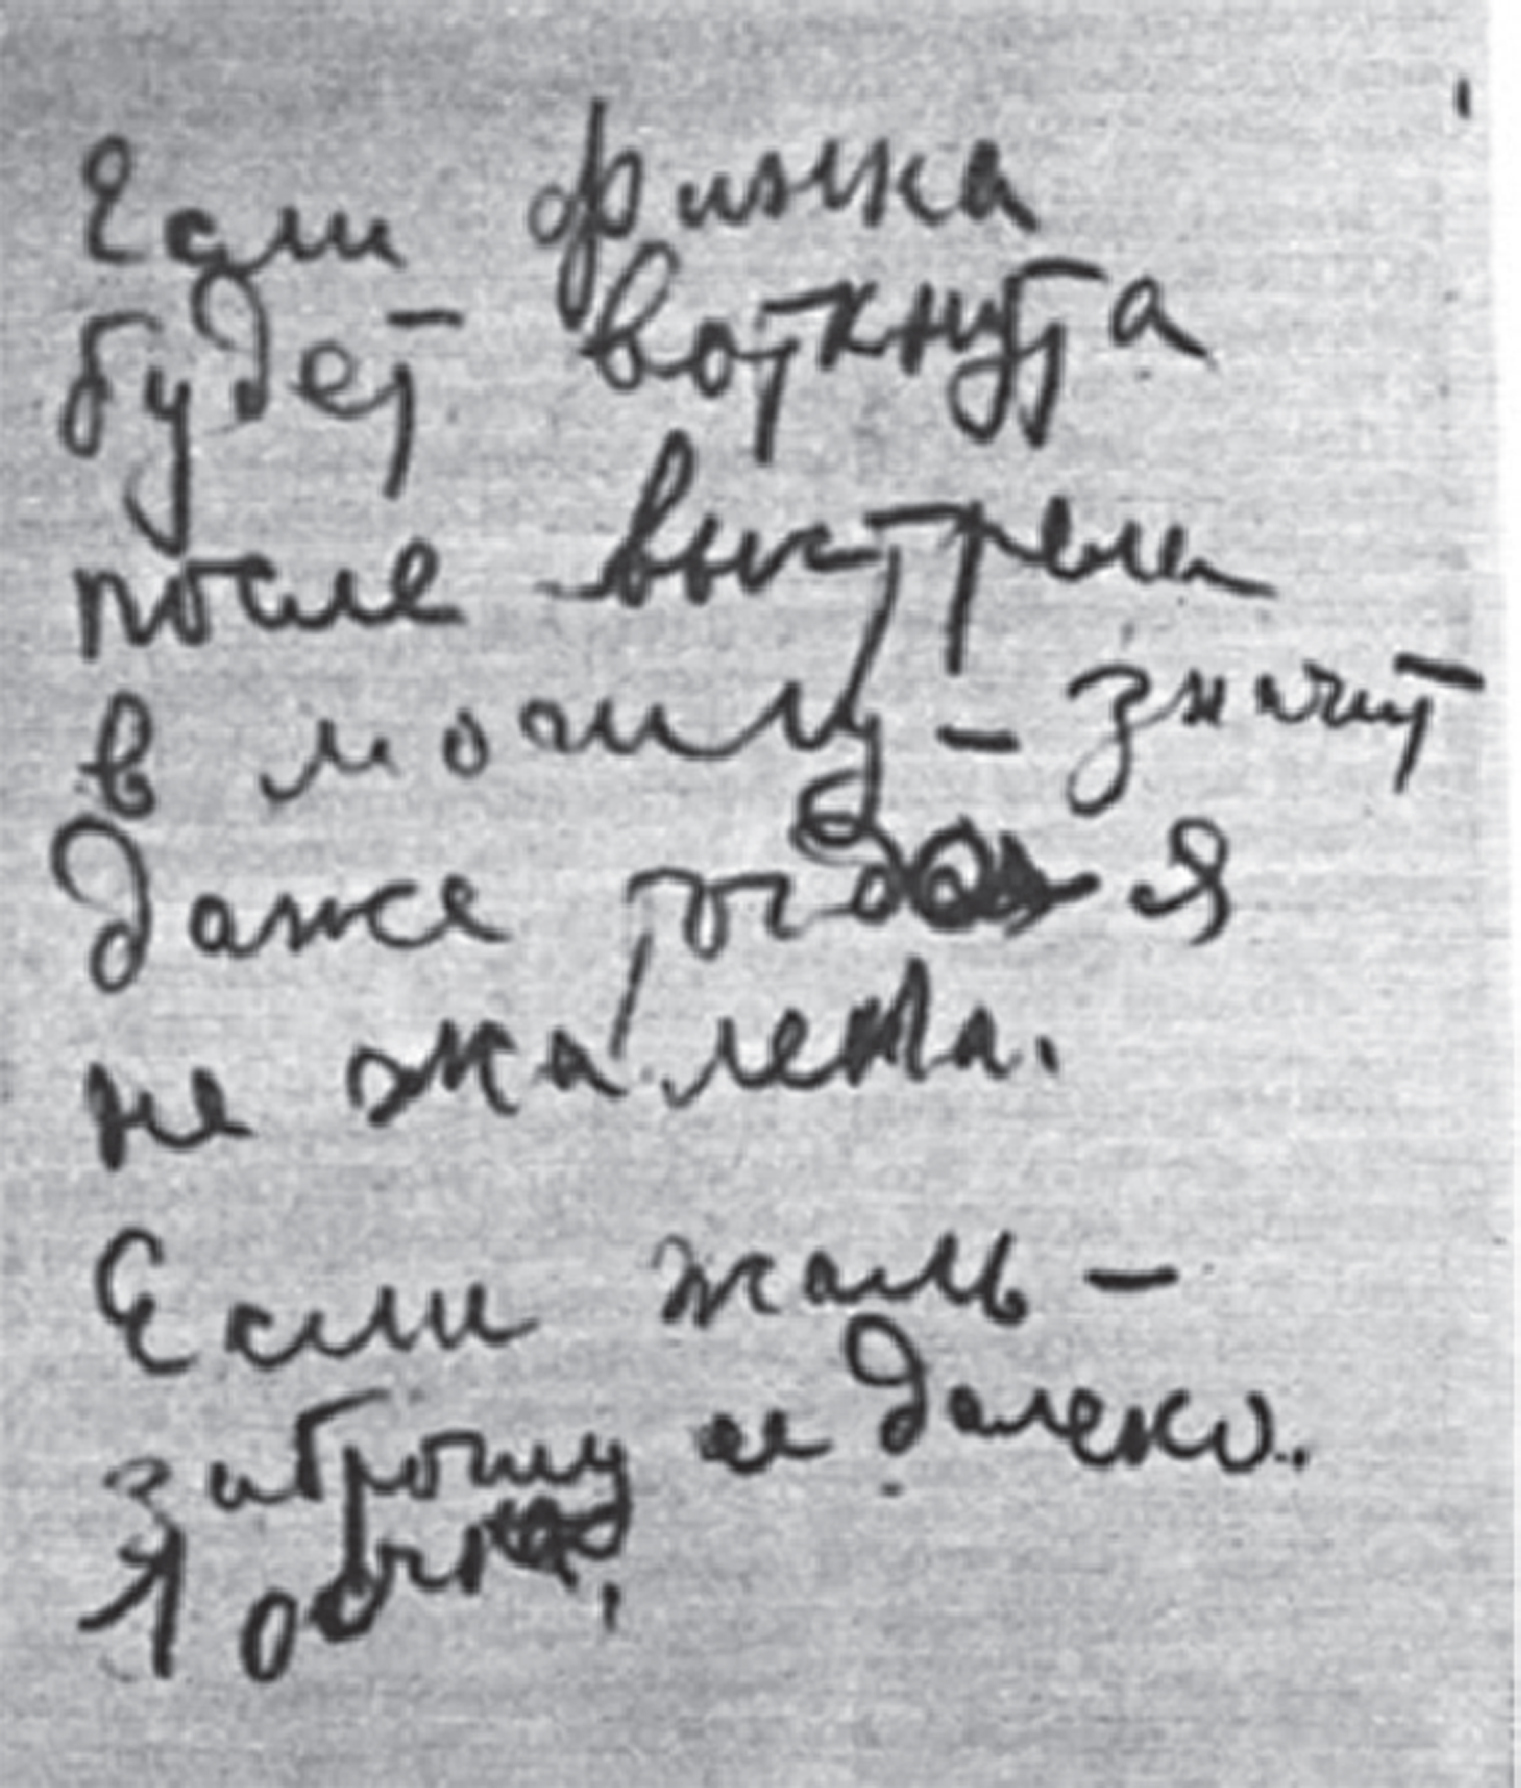 Если финка
будет воткнута
после выстрела
в могилу – значит
даже тогда я
не жалела.
Если жаль –
заброшу ее далеко.
1 осечка.